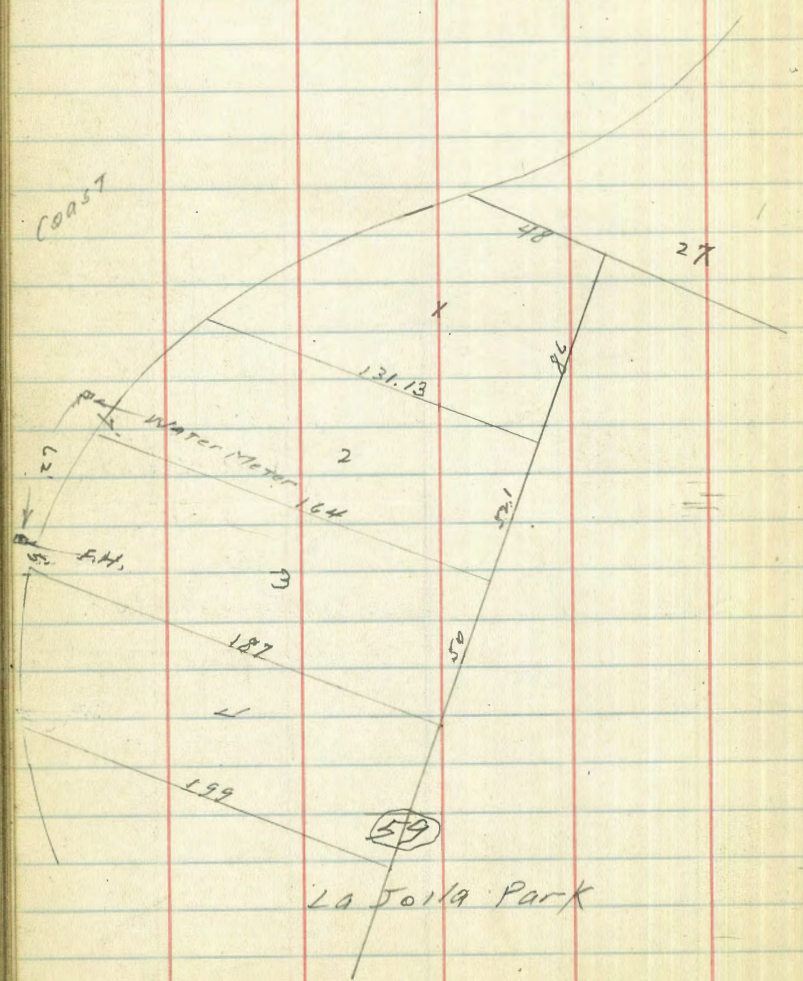 Coast
48
27
X
86
131.13
Water Meter
2
164
52.1
27.
F.H.
5.
3
187
50
4
199
59
La Jolla Park